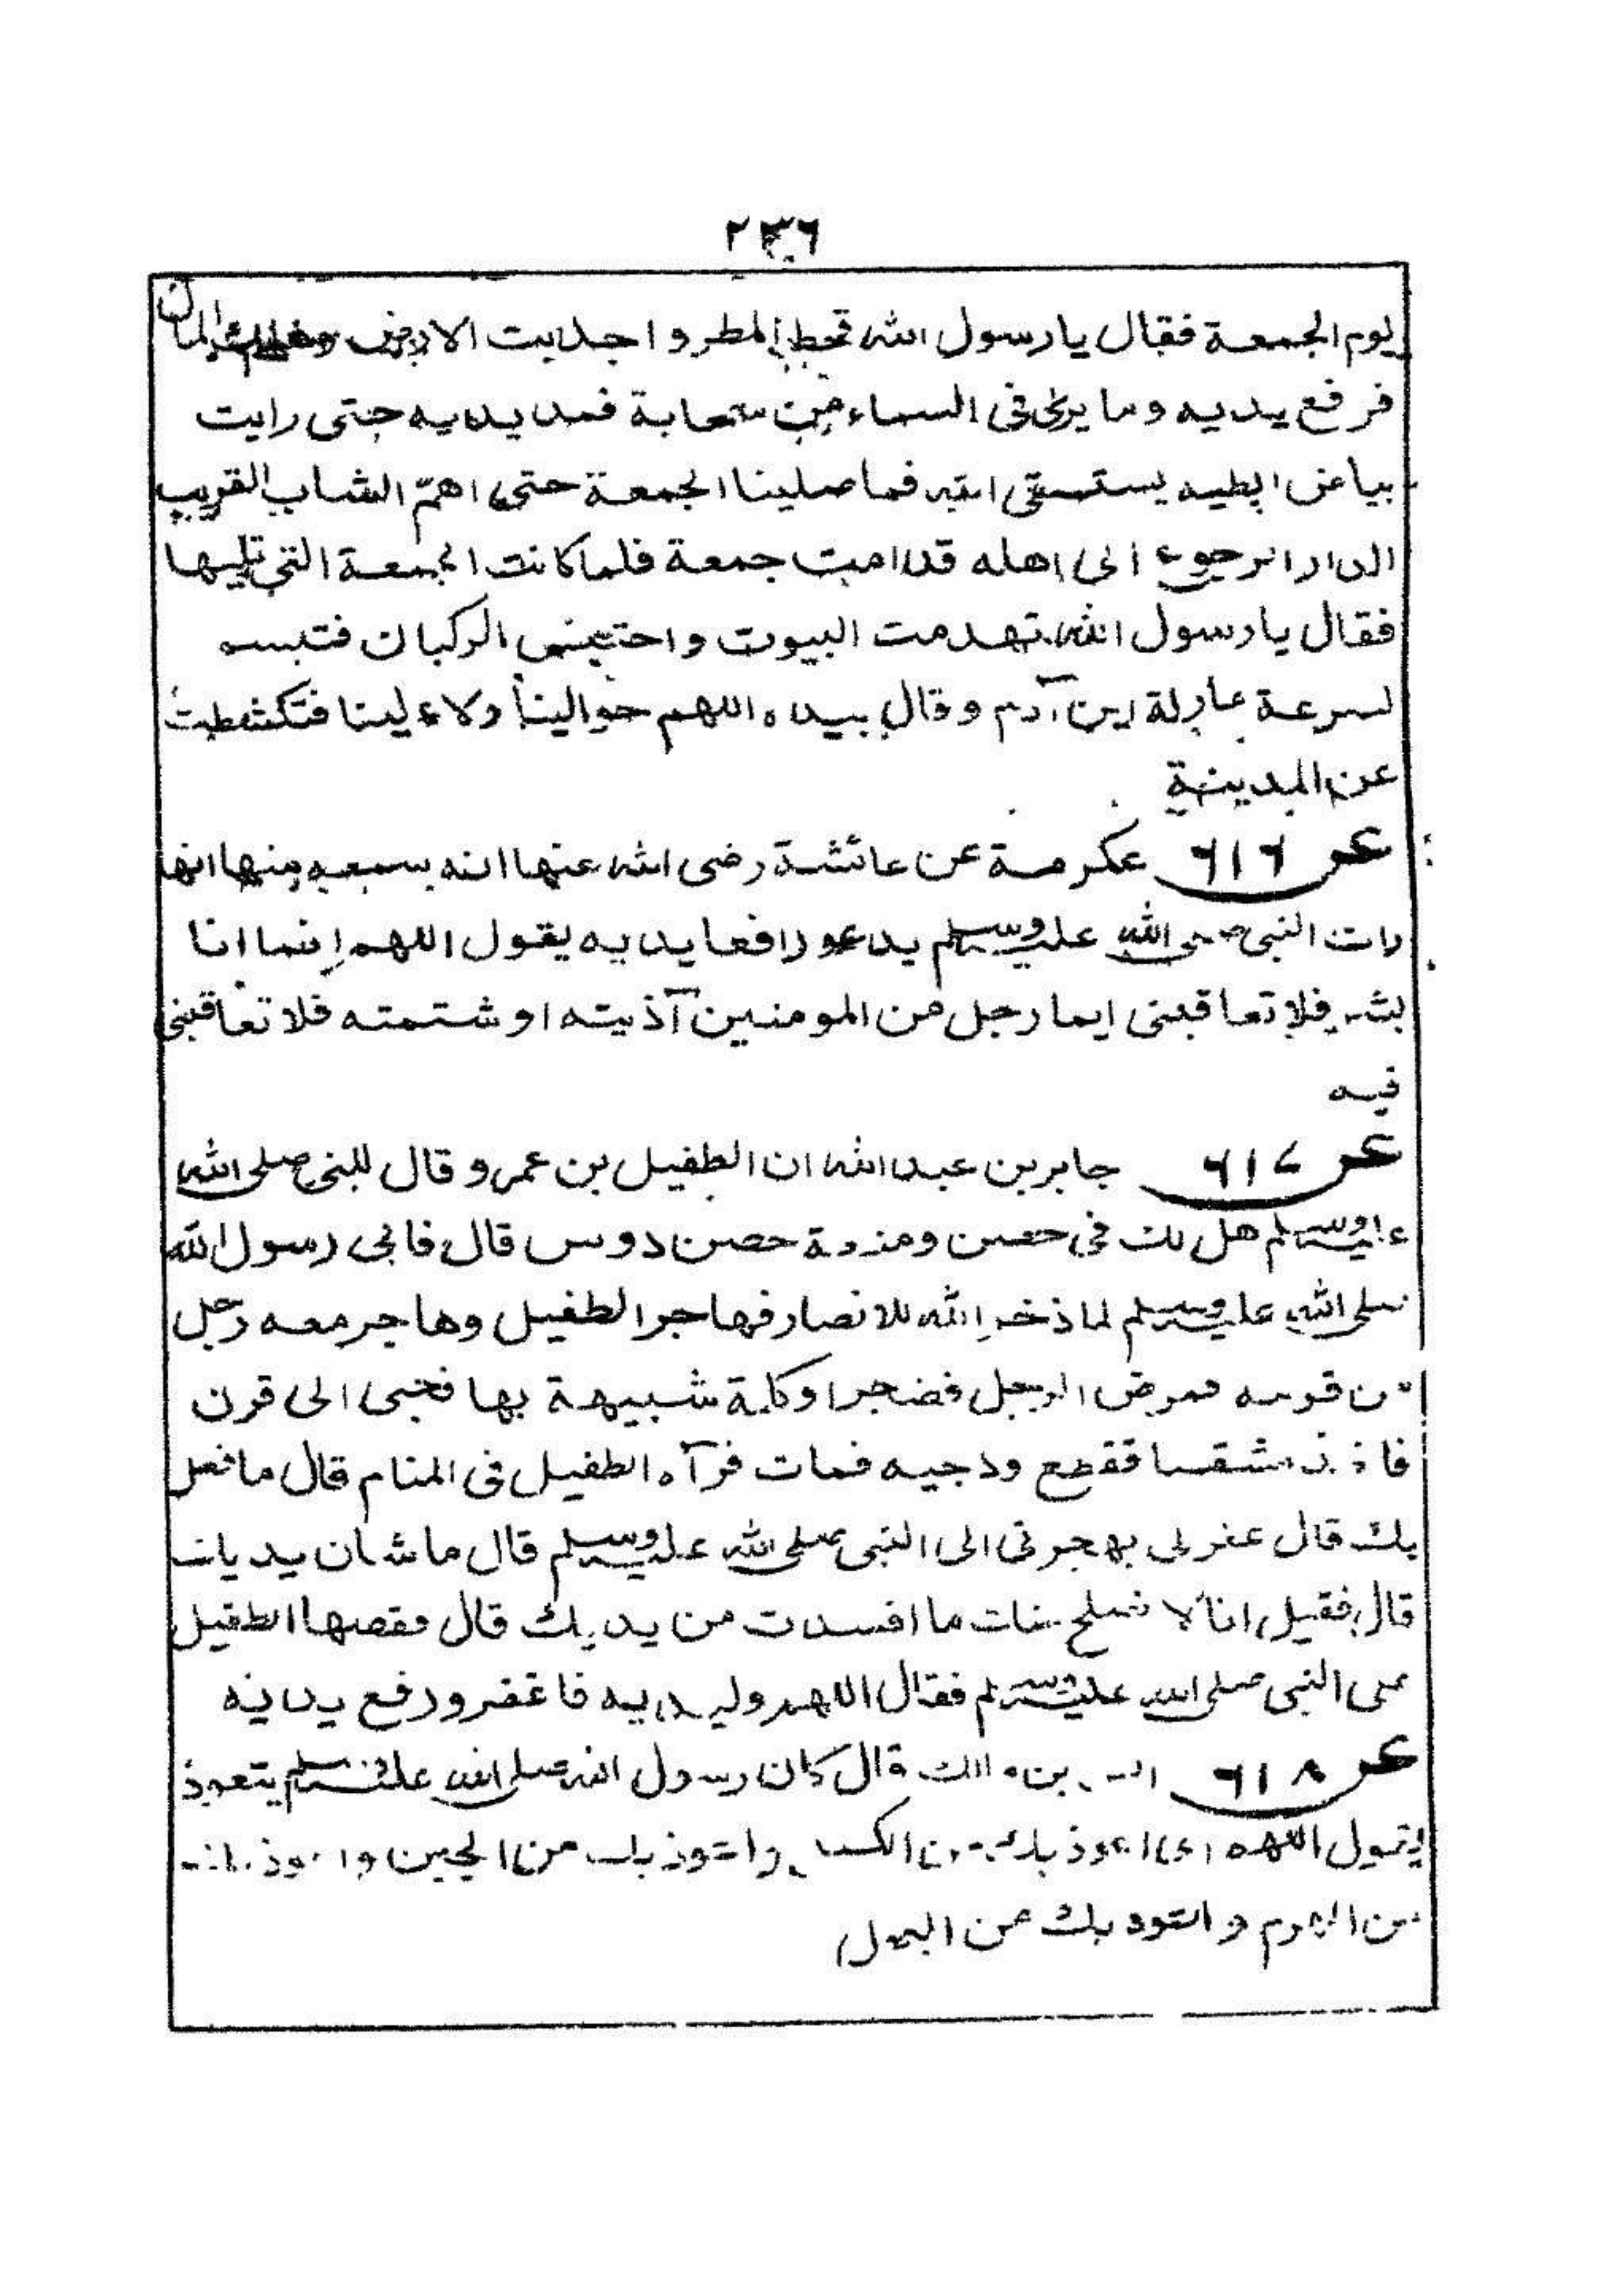 ٢٣٦
يوم الجمعة فقال يا رسول الله قحط المطر واجدبت الارض وهلك المال
فرفع يديه وما يرى فى السماء من سحابة فمد يديه حتى رايت
بياض ابطيه يستسقى الله فما صلينا الجمعة حتى اهمّ الشاب القريب
الدار الرجوع الى اهله فدامت جمعة فلما كانت الجمعة التى تليها
فقال يا رسول الله تهدمت البيوت واحتبس الركبان فتبسم
لسرعة ملالة ابن آدم وقال بيده اللهم حوالينا ولا علينا فتكشطت
عن المدينة
عـر ٦١٦ عكرمة عن عائشة رضى الله عنها انه سمعه منها انها
رات النبى صلى الله عليه وسلم يدعو رافعا يديه يقول اللهم انما انا
بشر فلا تعاقبنى ايما رجل من المومنين آذيته او شتمته فلا تعاقبنى
فيه
عـر ٦١٧ جابر بن عبد الله ان الطفيل بن عمرو قال للنبى صلى الله
عليه وسلم هل لك فى حصن ومنعة حصن دوس قال فابى رسول الله
صلى الله عليه وسلم لما ذخر الله للانصار فهاجر الطفيل وهاجر معه رجل
من قومه فمرض الرجل فضجر اوكلمة شبيهة بها فحبى الى قرن
فاخذ مشقصا فقطع ودجيه فمات فرآه الطفيل فى المنام قال ما فعل
بك قال غفر لى بهجرتى الى النبى صلى الله عليه وسلم قال ما شان يديك
قال فقيل انا لا نصلح منك ما افسدت من يديك قال فقصها الطفيل
على النبى صلى الله عليه وسلم فقال اللهم وليديه فاغفر ورفع يديه
عـر ٦١٨ انس بن مالك قال كان رسول الله صلى الله عليه وسلم يتعوذ
يقول اللهم انى اعوذ بك من الكسل واعوذ بك من الجبن واعوذ بك
من الهرم واعوذ بك من البخل